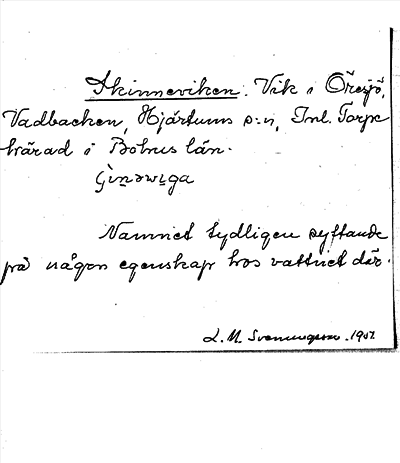 Skinneviken. Vik i Öresjö,
Vadbacken, Hjärtums s:n, Inl. Torpe
härad i Bohus län.
Namnet tydligen syftande
på någon egenskap hos vattnet där.
L. M. Svenungsson. 1907